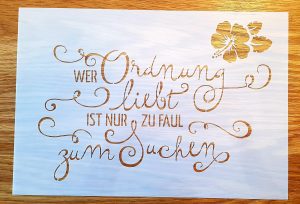 WER Ordnung
liebt
IST NUR ZU FAUL
zum Suchen